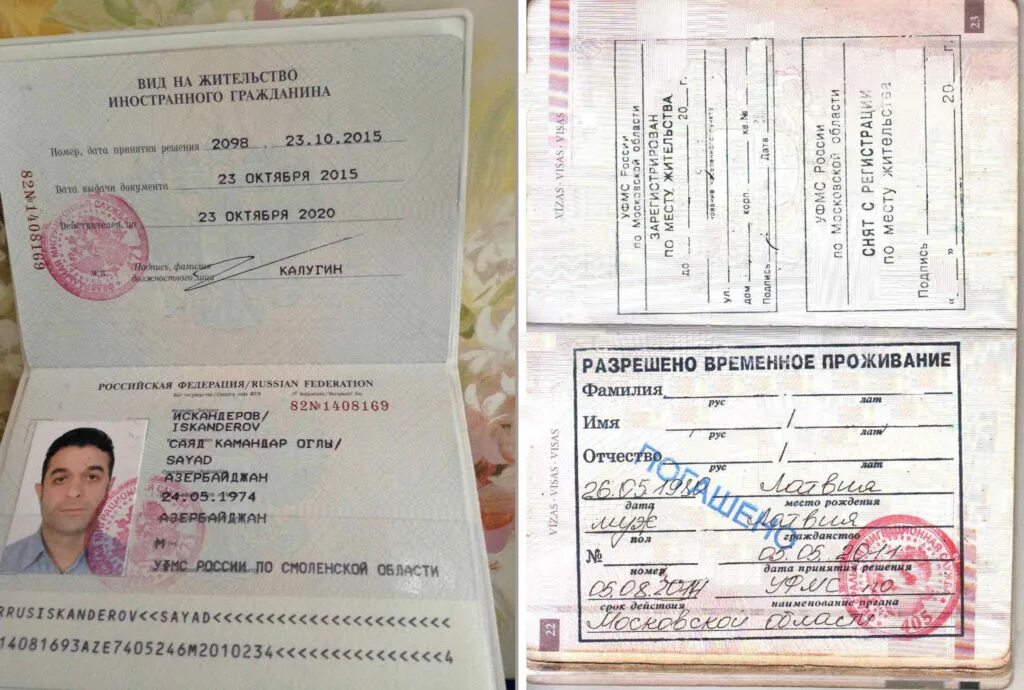 ВИД НА ЖИТЕЛЬСТВО
ИНОСТРАННОГО ГРАЖДАНИНА
Номер, дата принятия решения 2098 , 23.10.2015
Дата выдачи документа 23 ОКТЯБРЯ 2015
Действителен по 23 ОКТЯБРЯ 2020
м.п.
Подпись, фамилия
должностного лица
КАЛУГИН
82№1408169
РОССИЙСКАЯ ФЕДЕРАЦИЯ/RUSSIAN FEDERATION
82№1408169
ИСКАНДЕРОВ/
ISKANDEROV
САЯД КАМАНДАР ОГЛЫ/
SAYAD
АЗЕРБАЙДЖАН
24.05.1974
АЗЕРБАЙДЖАН
М
УФМС РОССИИ ПО СМОЛЕНСКОЙ ОБЛАСТИ
RRUSISKANDEROV<<SAYAD<<<<<<<<<<<<<<<<<<<<<<
14081693AZE7405246M2010234<<<<<<<<<<<<<<<<4
23
VIZAS·VISAS·VISAS
УФМС РОССИИ
по Московской области
ЗАРЕГИСТРИРОВАН
ПО МЕСТУ ЖИТЕЛЬСТВА
до 20 г.
ул.
дом корп. кв.№
Подпись Дата
УФМС РОССИИ
по Московской области
СНЯТ С РЕГИСТРАЦИИ
по месту жительства
Подпись
" " 20 г.
VIZAS·VISAS·VISAS
РАЗРЕШЕНО ВРЕМЕННОЕ ПРОЖИВАНИЕ
Фамилия
рус лат
Имя / /
рус лат
Отчество /
рус лат
ПОГАШЕНО
26.05.198 Латвия
дата место рождения
муж Латвия
пол гражданство
№ 05.05.2011
номер дата принятия решения
05.08.2014 УФМС по
срок действия наименование органа
Московской области
405
22